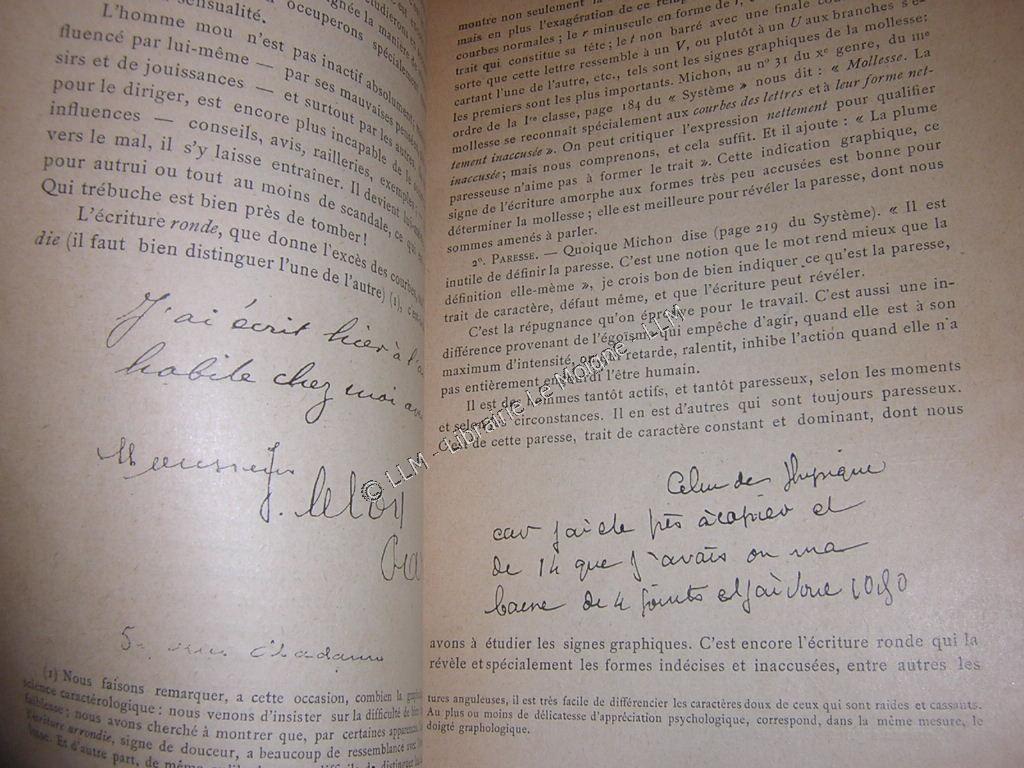 sensualité.
occuperons spécialement
L'homme mou n'est pas inactif absolument;
fluencé par lui-même — par ses mauvaises pensées
sirs et de jouissances — et surtout par les autres.
pour le diriger, est encore plus incapable de le
influences — conseils, avis, railleries, exemples,
vers le mal, il s'y laisse entraîner. Il devient lui-même
pour autrui ou tout au moins de scandale, ce qui
Qui trébuche est bien près de tomber!
L'écriture ronde, que donne l'excès des courbes,
die (il faut bien distinguer l'une de l'autre) (1), c'est
J'ai écrit hier à
habite chez moi
Monsieur
J.
5
(1) Nous faisons remarquer, a cette occasion, combien la
science caractérologique : nous venons d'insister sur la difficulté de
faiblesse; nous avons cherché à montrer que, par certaines
l'écriture arrondie, signe de douceur, a beaucoup de ressemblance avec
Et d'autre part, de même
montre non seulement la
mais en plus l'exagération de ce
courbes normales; le r minuscule en forme de
trait qui constitue sa tête; le t non barré avec une finale
sorte que cette lettre ressemble à un V, ou plutôt à un U aux branches s'é-
cartant l'une de l'autre, etc., tels sont les signes graphiques de la mollesse:
les premiers sont les plus importants. Michon, au nº 31 du Xe genre, du IIIe
ordre de la Ire classe, page 184 du « Système » nous dit : « Mollesse. La
mollesse se reconnaît spécialement aux courbes des lettres et à leur forme net-
tement inaccusée ». On peut critiquer l'expression nettement pour qualifier
inaccusée; mais nous comprenons, et cela suffit. Et il ajoute : « La plume
paresseuse n'aime pas à former le trait ». Cette indication graphique, ce
signe de l'écriture amorphe aux formes très peu accusées est bonne pour
déterminer la mollesse; elle est meilleure pour révéler la paresse, dont nous
sommes amenés à parler.
2º. PARESSE. — Quoique Michon dise (page 219 du Système). « Il est
inutile de définir la paresse. C'est une notion que le mot rend mieux que la
définition elle-même », je crois bon de bien indiquer ce qu'est la paresse,
trait de caractère, défaut même, et que l'écriture peut révéler.
C'est la répugnance qu'on éprouve pour le travail. C'est aussi une in-
différence provenant de l'égoïsme qui empêche d'agir, quand elle est à son
maximum d'intensité, ou qui retarde, ralentit, inhibe l'action quand elle n'a
pas entièrement engourdi l'être humain.
Il est des hommes tantôt actifs, et tantôt paresseux, selon les moments
et selon les circonstances. Il en est d'autres qui sont toujours paresseux.
C'est de cette paresse, trait de caractère constant et dominant, dont nous
Celui de Physique
car j'ai été près à copier et
de 14 que j'avais on m'a
baissé de 4 points et j'ai donc 10,50
avons à étudier les signes graphiques. C'est encore l'écriture ronde qui la
révèle et spécialement les formes indécises et inaccusées, entre autres les
tures anguleuses, il est très facile de différencier les caractères doux de ceux qui sont raides et cassants.
Au plus ou moins de délicatesse d'appréciation psychologique, correspond, dans la même mesure, le
doigté graphologique.
© LLM - Librairie Le Molone - LLM